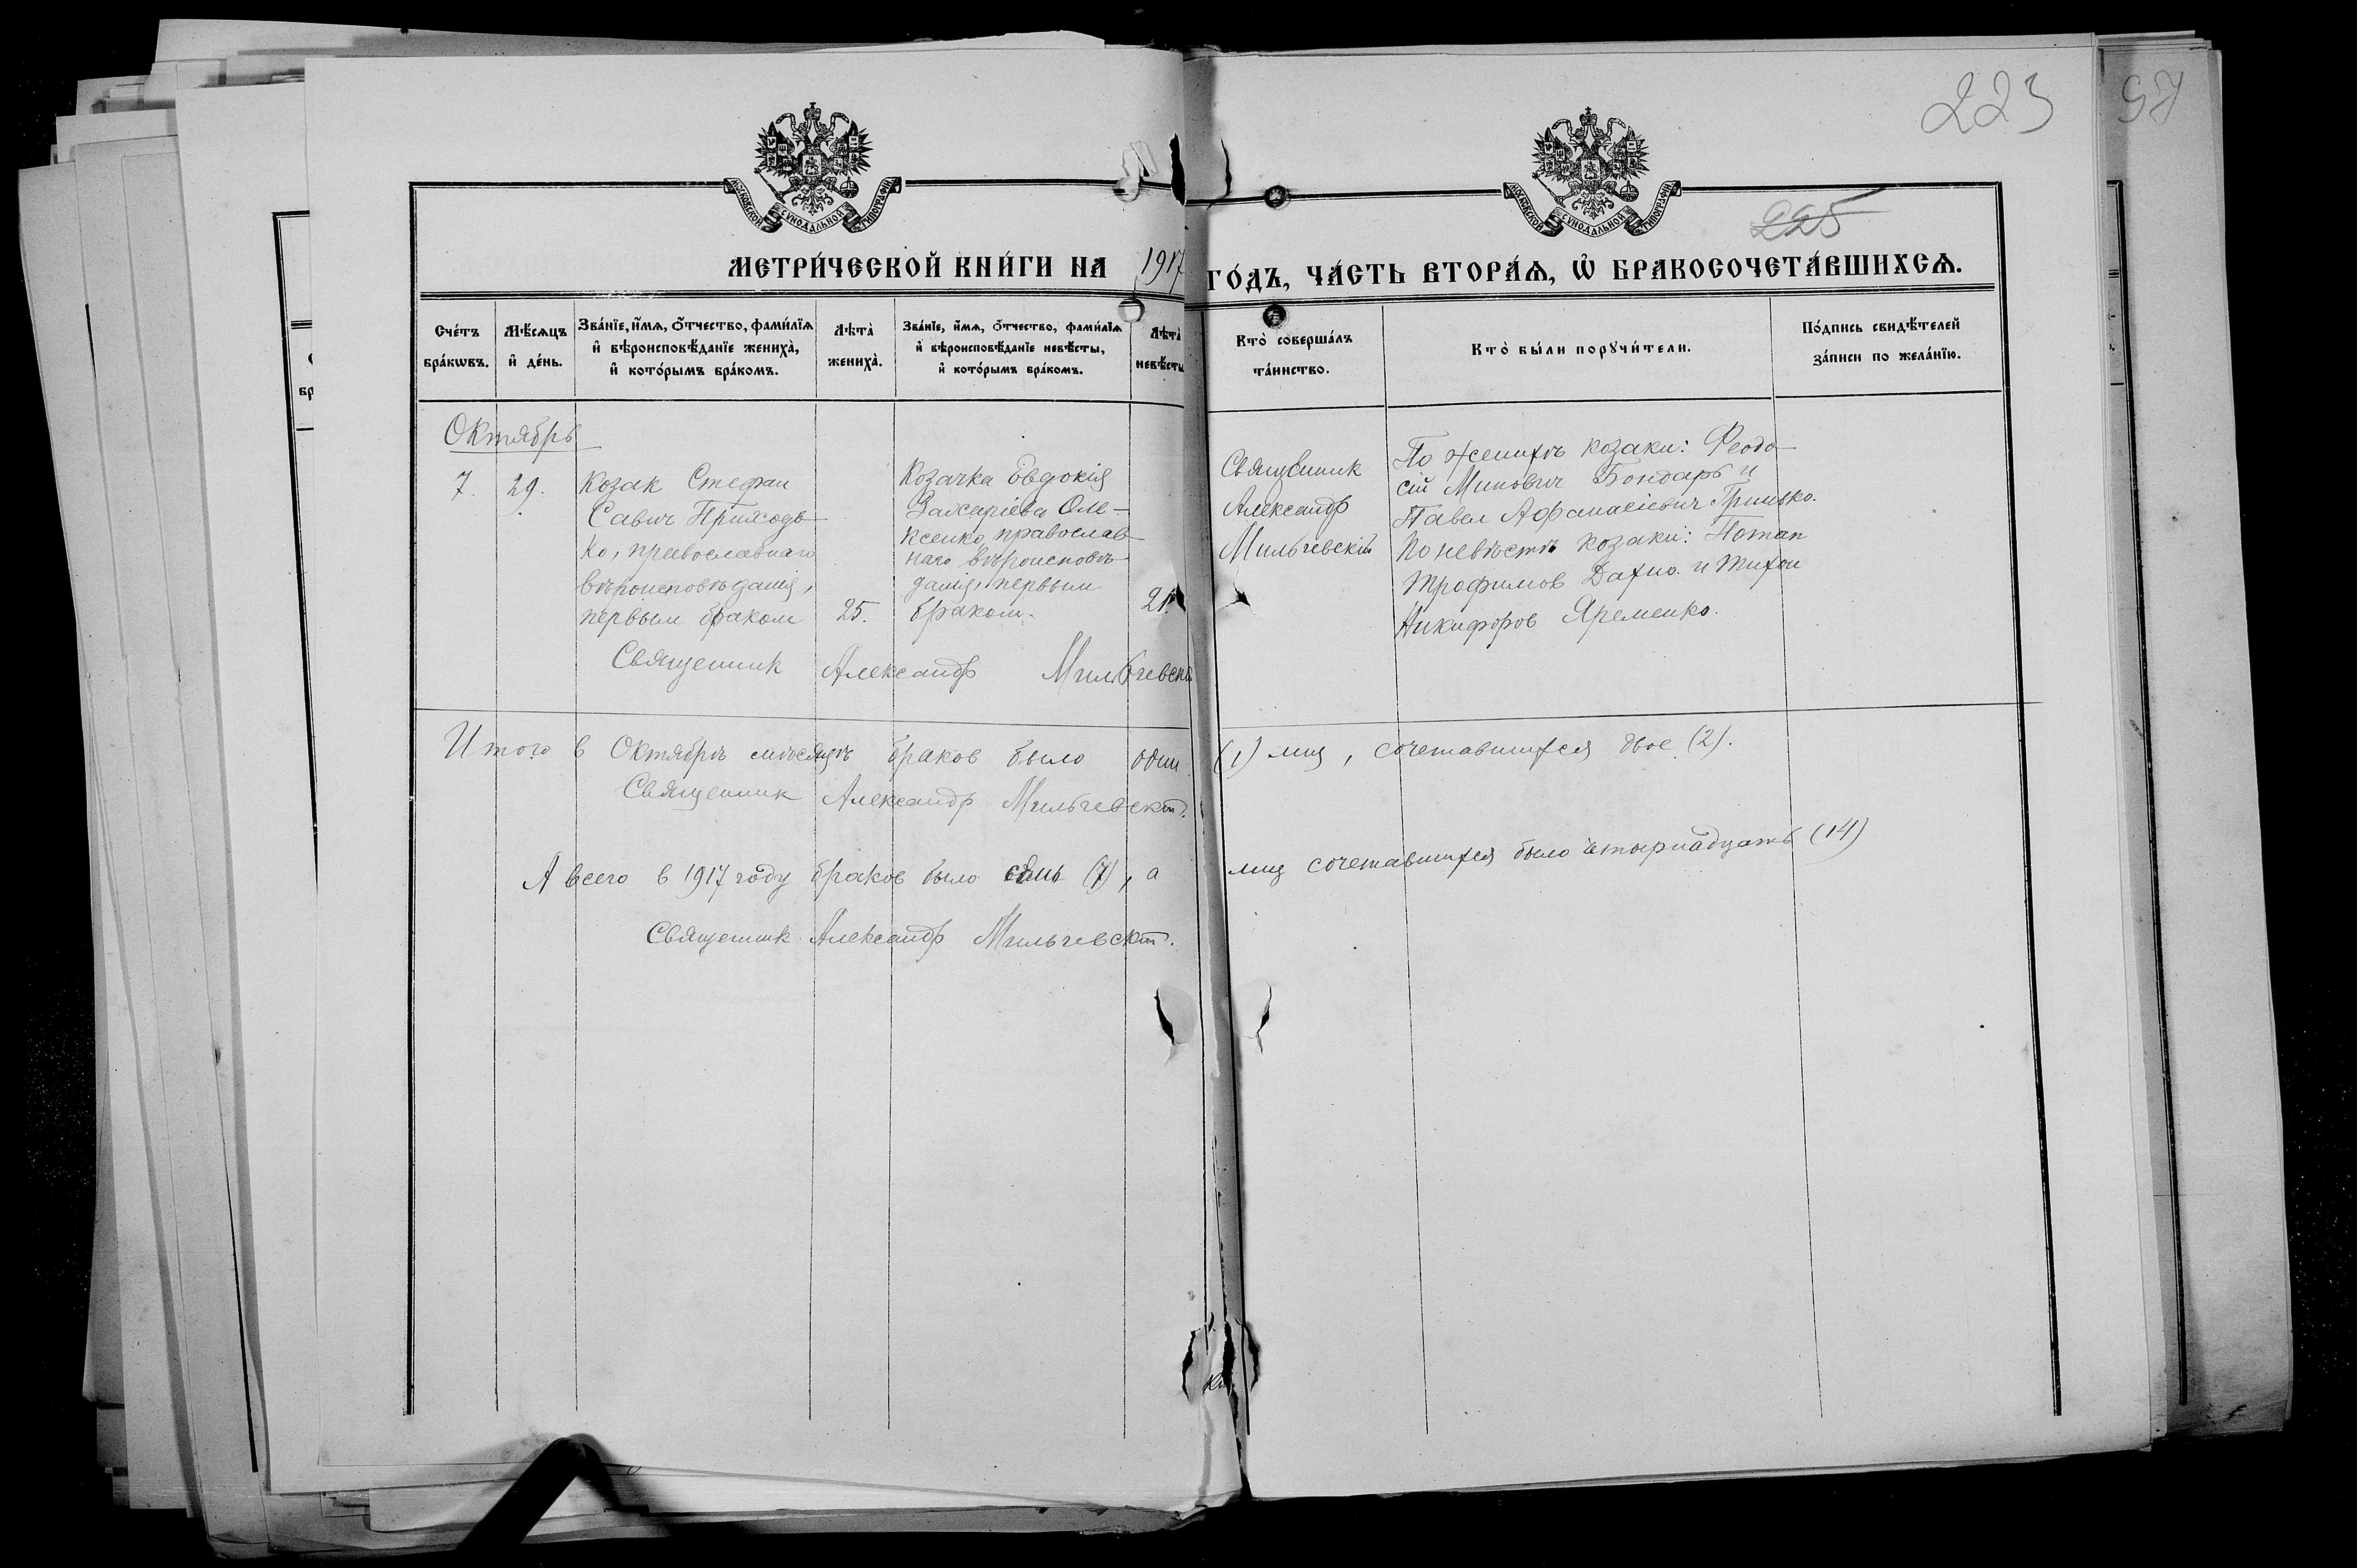 223
97
МОСКОВСКОЙ СѴНОДАЛЬНОЙ ТИПОГРАФІИ
МОСКОВСКОЙ СѴНОДАЛЬНОЙ ТИПОГРАФІИ
225
МЕТРИ́ЧЕСКОЙ КНИ́ГИ НА 1917 ГО́ДЪ, ЧА́СТЬ ВТОРА́Ѧ, Ѡ҆ БРАКОСОЧЕТА́ВШИХСѦ.
Счéтъ бра́кѡвъ.
Мѣ́сѧцъ и҆ де́нь.
Зва́нїе, и҆́мѧ, ѻ҆́тчество, фами́лїѧ и҆ вѣроисповѣ́данїе жениха̀, и҆ кото́рымъ бра́комъ.
Лѣта̀ жениха̀.
Зва́нїе, и҆́мѧ, ѻ҆́тчество, фами́лїѧ и҆ вѣроисповѣ́данїе невѣ́сты, и҆ кото́рымъ бра́комъ.
Лѣта̀ невѣ́сты
Кто̀ соверша́лъ та́инство.
Кто̀ бы́ли порꙋчи́тели.
По́дпись свидѣ́телей за́писи по жела́нїю.
Октябрь
7.
29.
Козак Стефан
Савич Приходь-
ко, православнаго
вѣроисповѣданія,
первым браком
25.
Козачка Евдокія
Захаріева Оле-
ксенко, православ-
наго вѣроисповѣ-
данія, первым
браком.
21.
Священник
Александр
Мильчевскій
По женихѣ козаки: Феодо-
сій Минович Бондарь и
Павел Афанасіевич Гринько.
По невѣстѣ козаки: Потап
Трофимов Дахно и Тихон
Никифоров Яременко.
Священник Александр Мильчевскій
Итого в Октябрѣ мѣсяцѣ браков было один (1) лиц, сочетавшихся двое (2).
Священник Александр Мильчевскій.
А всего в 1917 году браков было семь (7), а лиц сочетавшихся было четырнадцать (14)
Священник Александр Мильчевскій.